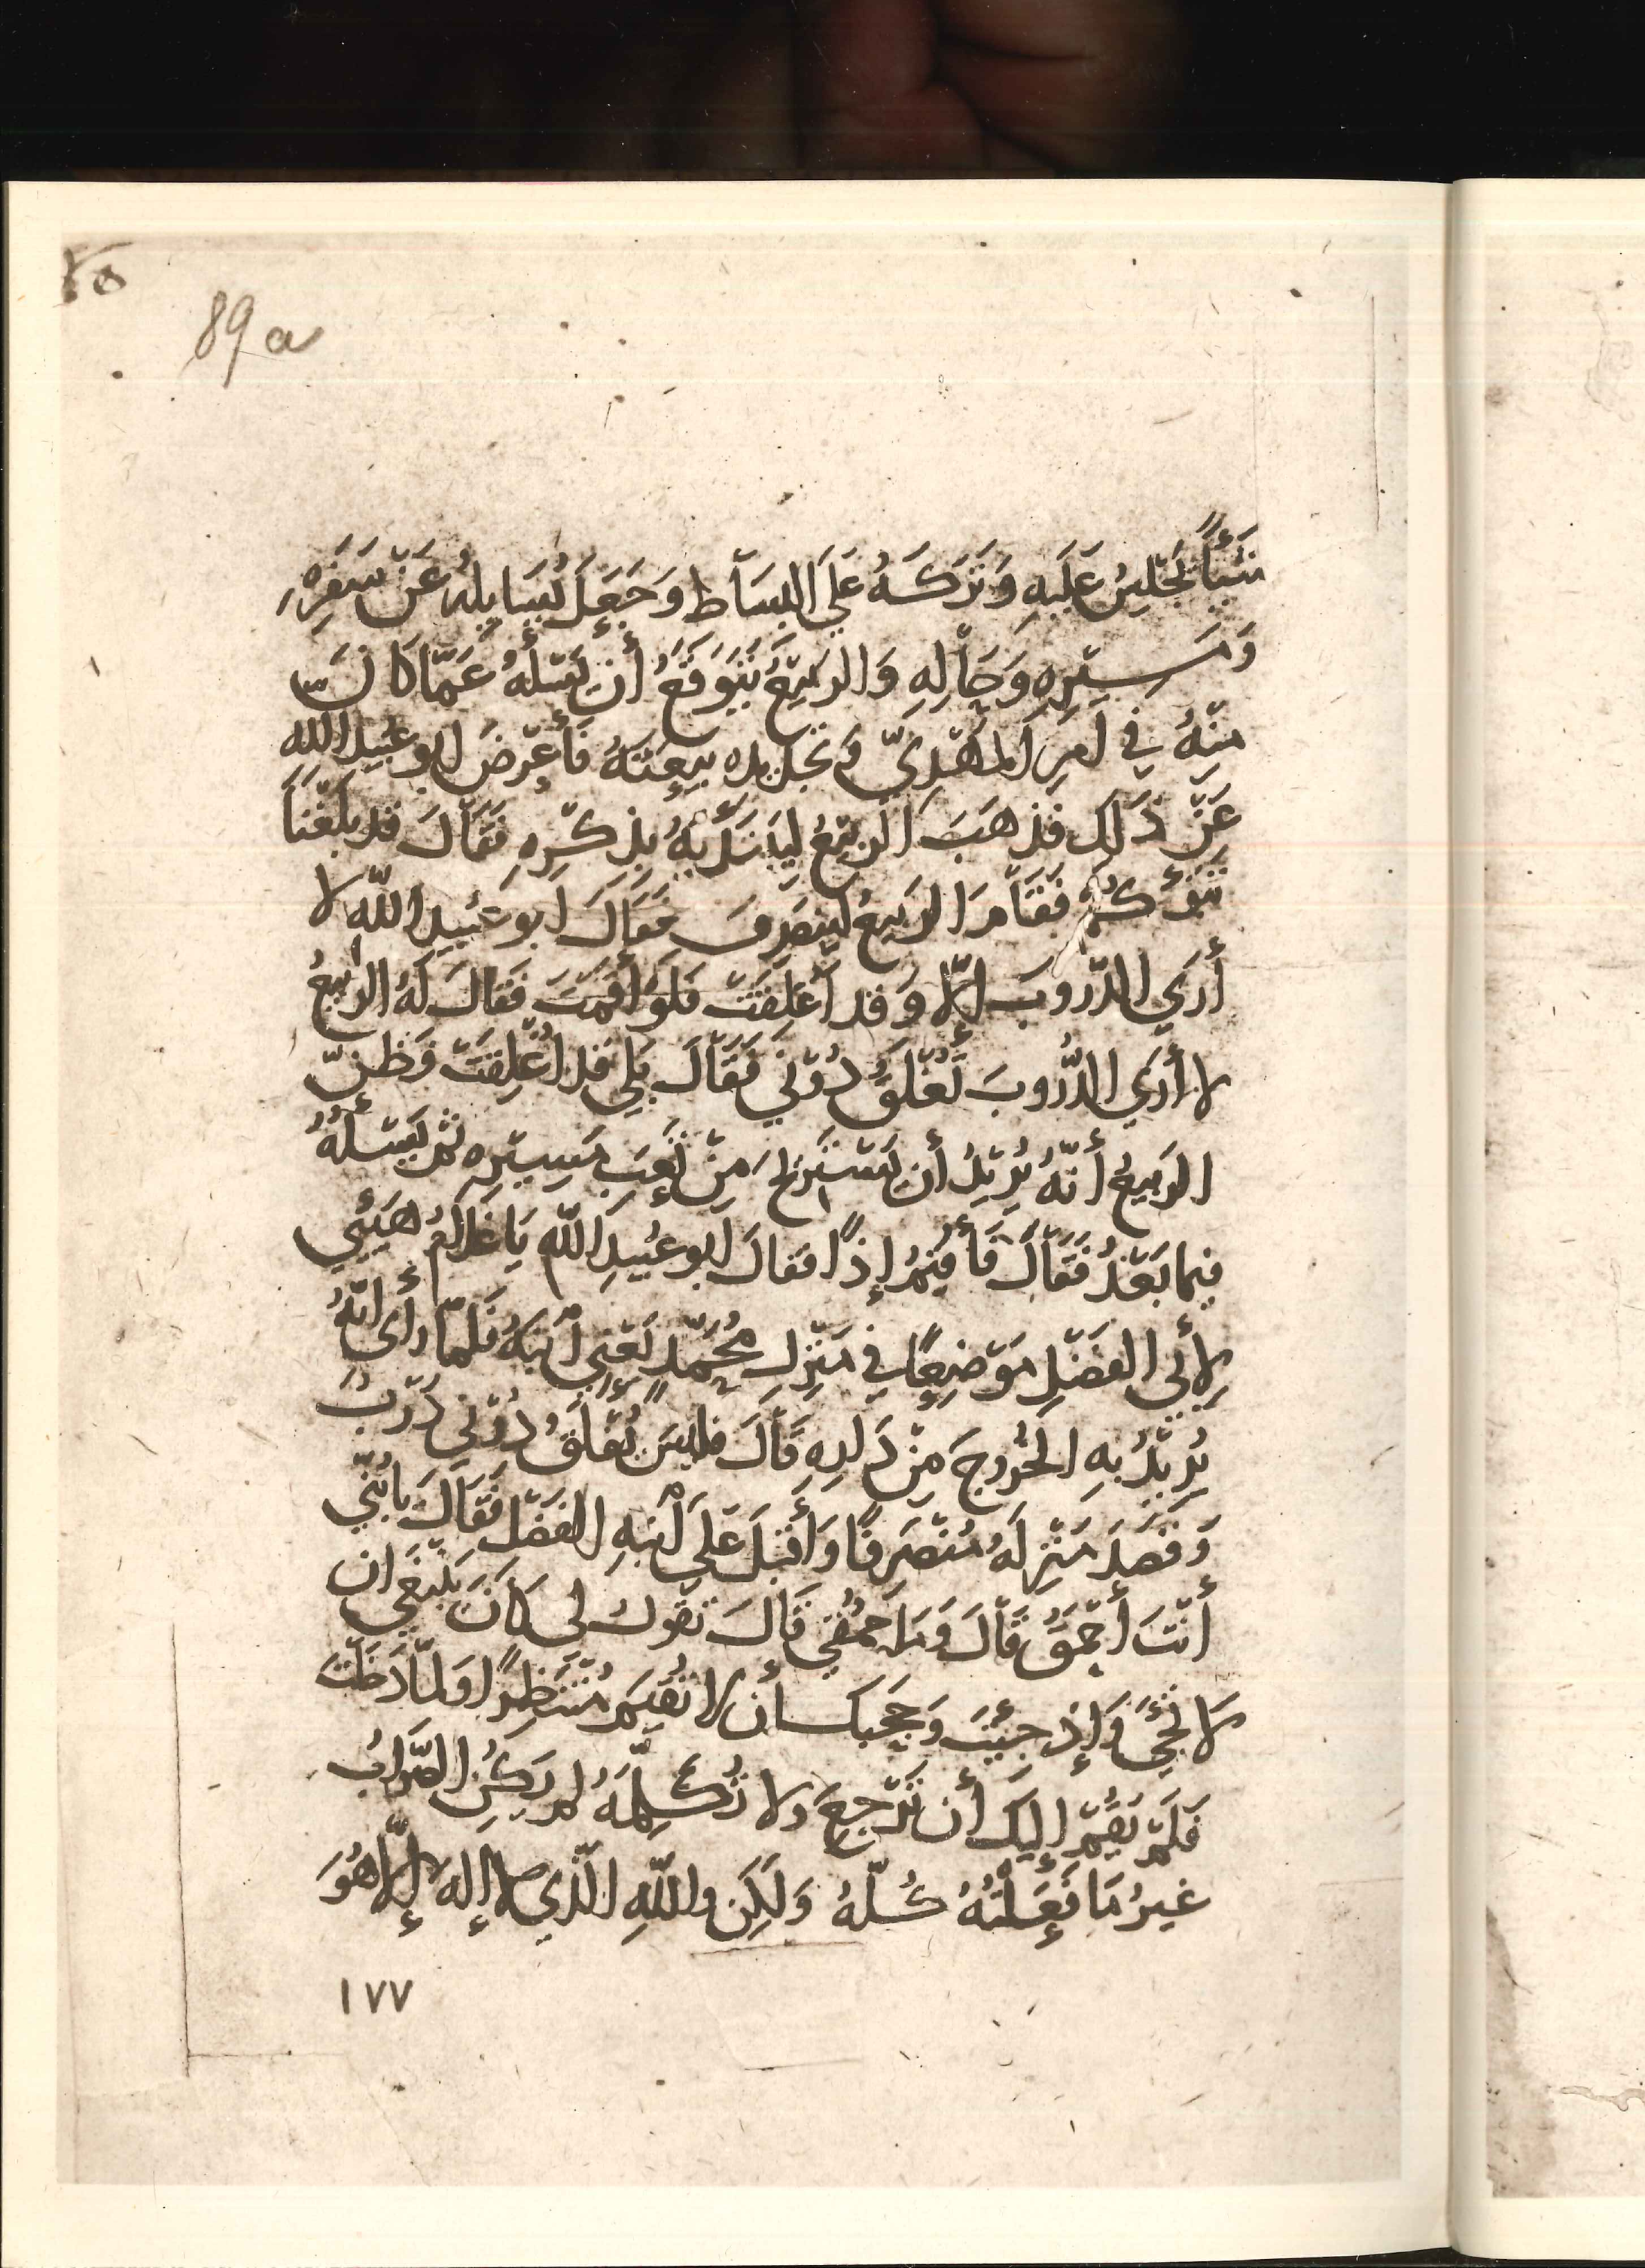 89a
شَيْئًا يَجْلِسُ عَلَيهِ وَتَرَكَهُ عَلَي البِسَاطِ وَجَعَلَ يُسَايِلُهُ عَنْ سَفَرِهِ
وَمَسِيرِهِ وَحَالِهِ وَالرَبِيعُ يَتَوَقَّعُ أَن يَسْئَلَهُ عَمَّا كَانَ
مِنْهُ فِي أَمرِ المَهْدِيِّ وَتَجْدِيدِهِ بيعَتَهُ فَأَعْرَضَ ابو عُبَيدِ اللهِ
عَنْ ذَلِكَ فَذَهَبَ الرَبِيعُ لِيَبْتَدِيَهُ بِذِكْرِهِ فَقَالَ قد بَلَغَنَا
نَبَؤُكُمْ فَقَامَ الرَبِيعُ لِيَنصَرِفَ فَقَالَ ابو عُبَيدِ اللّهِ لا
أَرَي الدّرُوبَ إِلّا وَقد أُغلِقَتْ فَلَو أَقَمْتَ فَقَالَ لَهُ الرَبِيعُ
لا أَرَي الدُّرُوبَ تُغْلَقُ دُوْنِي فَقَالَ بَلِي قَد اُغْلِقَتْ فَظَنَّ
الرَبِيعُ أَنَّهُ يُرِيْدُ أَن يَسْتَرِيحَ مِنْ تَعَبِ مَسِيْرِهِ ثم يَسْئَلَهُ
فِيما بَعْدُ فَقَالَ فَأُقِيْمُ إِذًا فَقالَ ابو عُبَيدِ اللّهِ يَا غُلامُ هَيِّئي
لِأَبِي الفَضْلِ مَوْضِعًا فِي مَنْزِلِ مُحَمَّدٍ يَعْنِي اَبنَهُ فَلَمّا رَأَى انَّهُ
يُرِيْدُ بِهِ الخُرُوجَ مِنْ دَارِهِ قَالَ فليسَ يُغْلَقُ دُوْنِي دَرْبٌ
وَقَصَدَ مَنْزِلَهُ مُنْصَرِفًا وَأَقْبَلَ عَلَي اَبنِهِ الفَضْلِ فَقَالَ يا بُنَيِّ
أَنْتَ أَحْمَقُ قَالَ وَمَا حُمْقِي قَالَ تقول لِي كَانَ يَنْبَغِي ان
لا تَجِئَ وَإِذ جِئْتَ وَحَجَبَكَ أن لا تُقِيمَ مُنْتَظِرًا وَلَمّا دَخَلْتَ
فَلَمْ يَقُمْ إِلَيكَ أَن تَرْجِعَ ولا تُكَلِّمَهُ لم يَكُنِ الصّوَابُ
غيرُ مَا فَعَلْتُهُ كُلّهُ وَلَكِن واللّهِ الَّذِي لا إِلهَ إِلّا هُوَ
١٧٧